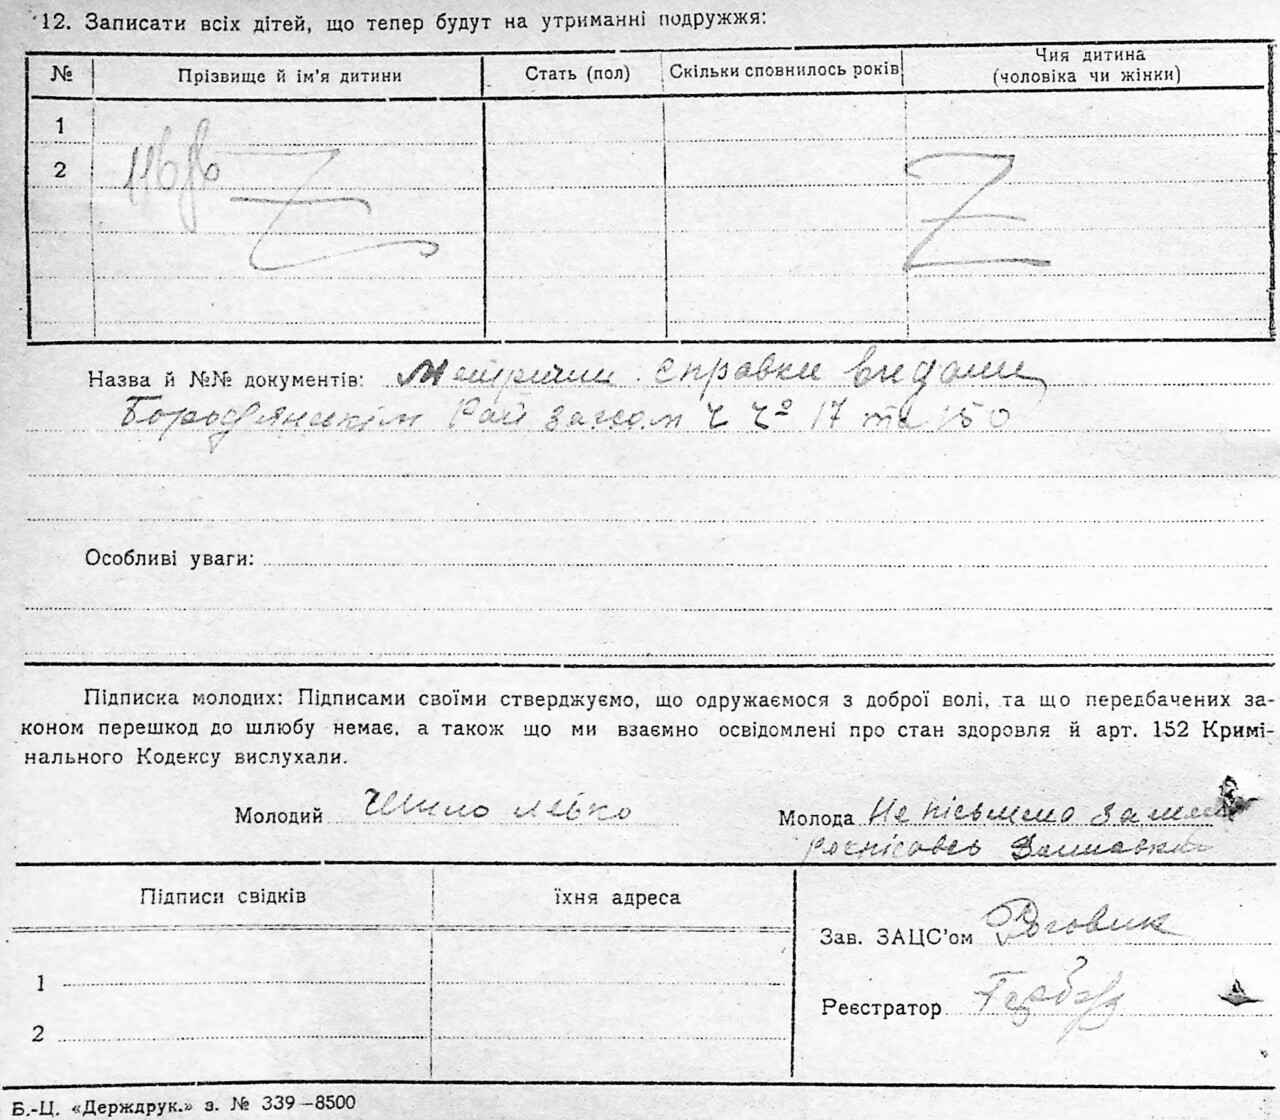 12. Записати всіх дітей, що тепер будут на утриманні подружжя:
№ Прізвище й ім'я дитини Стать (пол) Скільки сповнилось років Чия дитина (чоловіка чи жінки)
1
2
Назва й №№ документів: Метричні справки видани
Бородянським Рай загсом 17 та 150
Особливі уваги:
Підписка молодих: Підписами своїми стверджуємо, що одружаємося з доброї волі, та що передбачених за-
коном перешкод до шлюбу немає, а також що ми взаємно освідомлені про стан здоровля й арт. 152 Кримі-
нального Кодексу вислухали.
Молодий Шило Левко Молода Не письмена за
Підписи свідків їхня адреса
Зав. ЗАЦС'ом Роговик
1
Реєстратор
2
Б.-Ц. «Держдрук.» з. № 339—8500